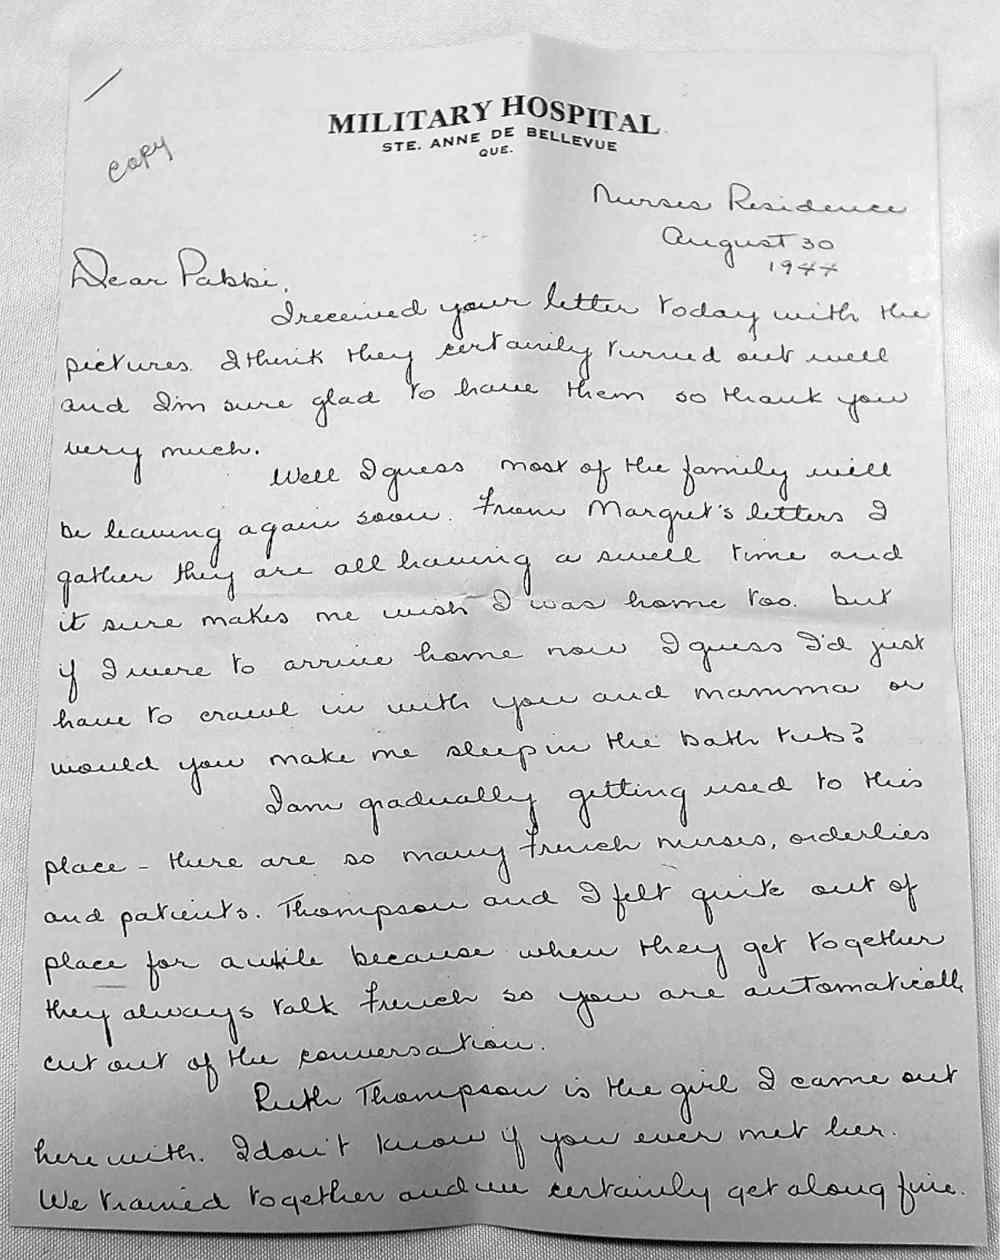 MILITARY HOSPITAL
STE. ANNE DE BELLEVUE
QUE.
copy
Nurses Residence
August 30
1944
Dear Pabbi,
I received your letter today with the
pictures. I think they certainly turned out well
and I'm sure glad to have them so thank you
very much.
Well I guess most of the family will
be leaving again soon. From Margret's letters I
gather they are all having a swell time and
it sure makes me wish I was home too. but
if I were to arrive home now I guess I'd just
have to crawl in with you and mamma or
would you make me sleep in the bath tub?
I am gradually getting used to this
place - there are so many French nurses, orderlies
and patients. Thompson and I felt quite out of
place for awhile because when they get together
they always talk French so you are automatically
cut out of the conversation.
Ruth Thompson is the girl I came out
here with. I don't know if you ever met her.
We trained together and we certainly get along fine.